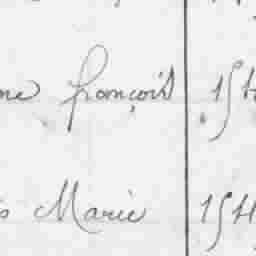 ne françois 15
s Marie 154